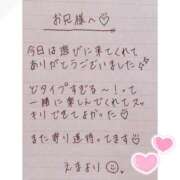 お兄様へ♡
今日は遊びに来てくれて
ありがとうございました
どタイプすぎる〜!って
一緒に楽しんでくれてスッ
キリできてよかった♡
また寄り道待ってます♡
えまより☺